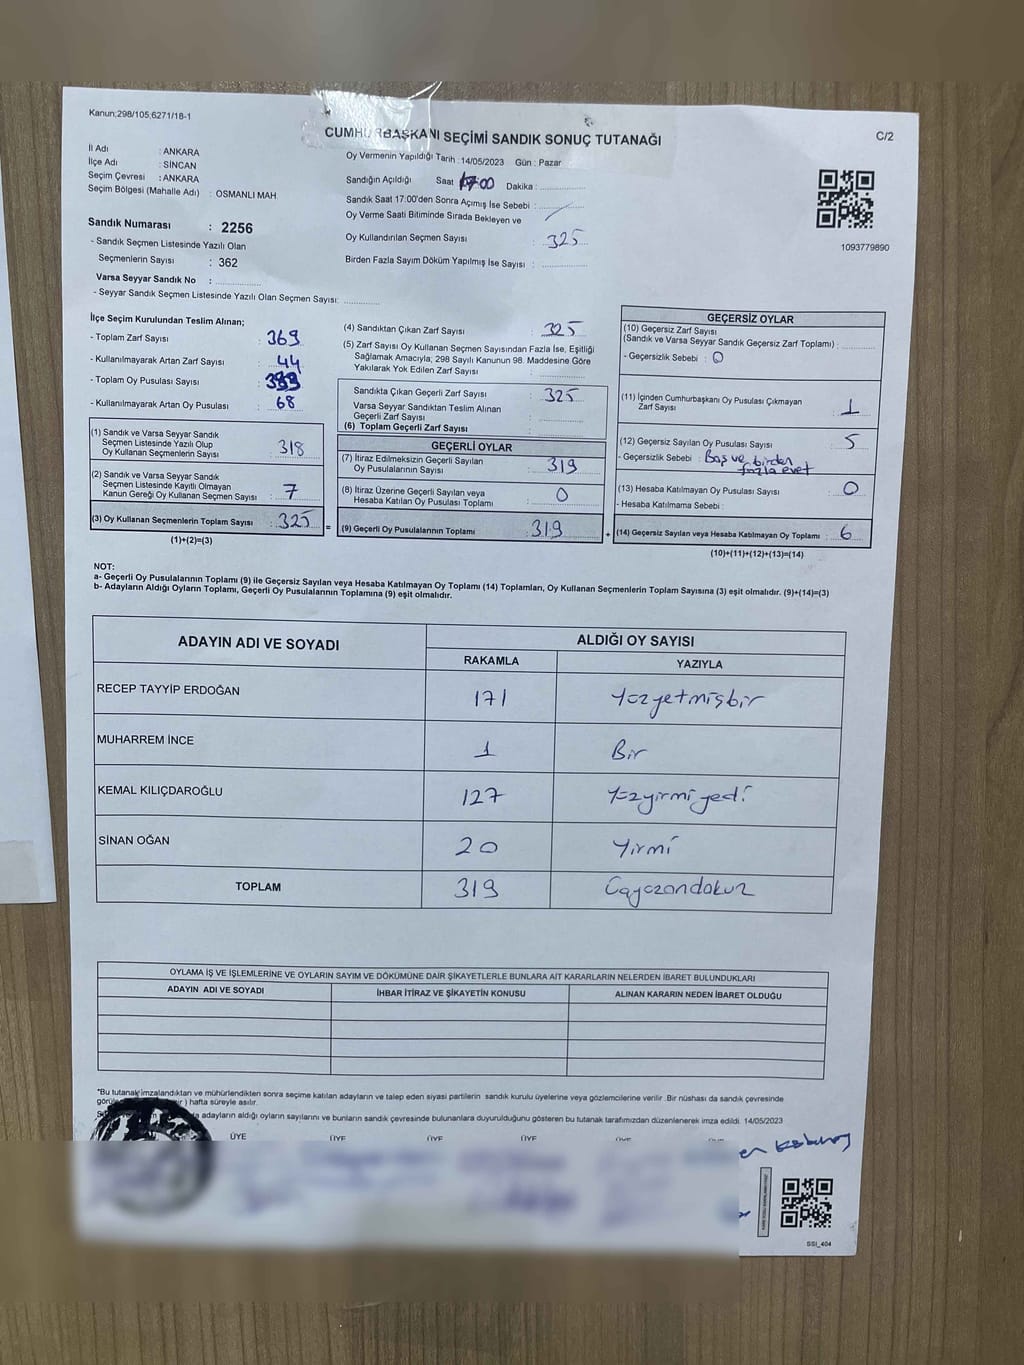 Kanun;298/105;6271/18-1
C/2
CUMHURBAŞKANI SEÇİMİ SANDIK SONUÇ TUTANAĞI
İl Adı : ANKARA
İlçe Adı : SİNCAN
Seçim Çevresi : ANKARA
Seçim Bölgesi (Mahalle Adı) : OSMANLI MAH
Sandık Numarası : 2256
- Sandık Seçmen Listesinde Yazılı Olan
Seçmenlerin Sayısı : 362
Varsa Seyyar Sandık No :
- Seyyar Sandık Seçmen Listesinde Yazılı Olan Seçmen Sayısı:
Oy Vermenin Yapıldığı Tarih : 14/05/2023 Gün : Pazar
Sandığın Açıldığı Saat 17:00 Dakika :
Sandık Saat 17:00'den Sonra Açımış İse Sebebi :
Oy Verme Saati Bitiminde Sırada Bekleyen ve
Oy Kullandırılan Seçmen Sayısı : 325
Birden Fazla Sayım Döküm Yapılmış İse Sayısı :
1093779890
İlçe Seçim Kurulundan Teslim Alınan;
- Toplam Zarf Sayısı : 369
- Kullanılmayarak Artan Zarf Sayısı : 44
- Toplam Oy Pusulası Sayısı :
- Kullanılmayarak Artan Oy Pusulası : 68
(1) Sandık ve Varsa Seyyar Sandık
Seçmen Listesinde Yazılı Olup
Oy Kullanan Seçmenlerin Sayısı : 318
(2) Sandık ve Varsa Seyyar Sandık
Seçmen Listesinde Kayıtlı Olmayan
Kanun Gereği Oy Kullanan Seçmen Sayısı : 7
(3) Oy Kullanan Seçmenlerin Toplam Sayısı : 325
(1)+(2)=(3)
(4) Sandıktan Çıkan Zarf Sayısı : 325
(5) Zarf Sayısı Oy Kullanan Seçmen Sayısından Fazla İse, Eşitliği
Sağlamak Amacıyla; 298 Sayılı Kanunun 98. Maddesine Göre
Yakılarak Yok Edilen Zarf Sayısı :
Sandıkta Çıkan Geçerli Zarf Sayısı : 325
Varsa Seyyar Sandıktan Teslim Alınan
Geçerli Zarf Sayısı :
(6) Toplam Geçerli Zarf Sayısı :
GEÇERLİ OYLAR
(7) İtiraz Edilmeksizin Geçerli Sayılan
Oy Pusulalarının Sayısı : 319
(8) İtiraz Üzerine Geçerli Sayılan veya
Hesaba Katılan Oy Pusulası Toplamı : 0
= (9) Geçerli Oy Pusulalarının Toplamı : 319
GEÇERSİZ OYLAR
(10) Geçersiz Zarf Sayısı
(Sandık ve Varsa Seyyar Sandık Geçersiz Zarf Toplamı) :
- Geçersizlik Sebebi : 0
(11) İçinden Cumhurbaşkanı Oy Pusulası Çıkmayan
Zarf Sayısı : 1
(12) Geçersiz Sayılan Oy Pusulası Sayısı : 5
- Geçersizlik Sebebi : Boş ve birden
fazla evet
(13) Hesaba Katılmayan Oy Pusulası Sayısı : 0
- Hesaba Katılmama Sebebi :
+ (14) Geçersiz Sayılan veya Hesaba Katılmayan Oy Toplamı : 6
(10)+(11)+(12)+(13)=(14)
NOT:
a- Geçerli Oy Pusulalarının Toplamı (9) ile Geçersiz Sayılan veya Hesaba Katılmayan Oy Toplamı (14) Toplamları, Oy Kullanan Seçmenlerin Toplam Sayısına (3) eşit olmalıdır. (9)+(14)=(3)
b- Adayların Aldığı Oyların Toplamı, Geçerli Oy Pusulalarının Toplamına (9) eşit olmalıdır.
ADAYIN ADI VE SOYADI
ALDIĞI OY SAYISI
RAKAMLA YAZIYLA
RECEP TAYYİP ERDOĞAN 171 Yüzyetmişbir
MUHARREM İNCE 1 Bir
KEMAL KILIÇDAROĞLU 127 Yüzyirmiyedi
SİNAN OĞAN 20 Yirmi
TOPLAM 319 Üçyüzondokuz
OYLAMA İŞ VE İŞLEMLERİNE VE OYLARIN SAYIM VE DÖKÜMÜNE DAİR ŞİKAYETLERLE BUNLARA AİT KARARLARIN NELERDEN İBARET BULUNDUKLARI
ADAYIN ADI VE SOYADI İHBAR İTİRAZ VE ŞİKAYETİN KONUSU ALINAN KARARIN NEDEN İBARET OLDUĞU
"Bu tutanak imzalandıktan ve mühürlendikten sonra seçime katılan adayların ve talep eden siyasi partilerin sandık kurulu üyelerine veya gözlemcilerine verilir .Bir nüshası da sandık çevresinde
) hafta süreyle asılır.
adayların aldığı oyların sayılarını ve bunların sandık çevresinde bulunanlara duyurulduğunu gösteren bu tutanak tarafımızdan düzenlenerek imza edildi. 14/05/2023
ÜYE ÜYE ÜYE ÜYE ÜYE
SSI_404